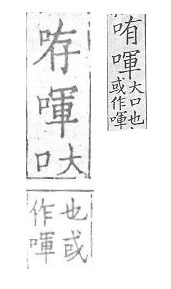 哊喗
大口也
或作喗
喗
大
口
也或
作喗